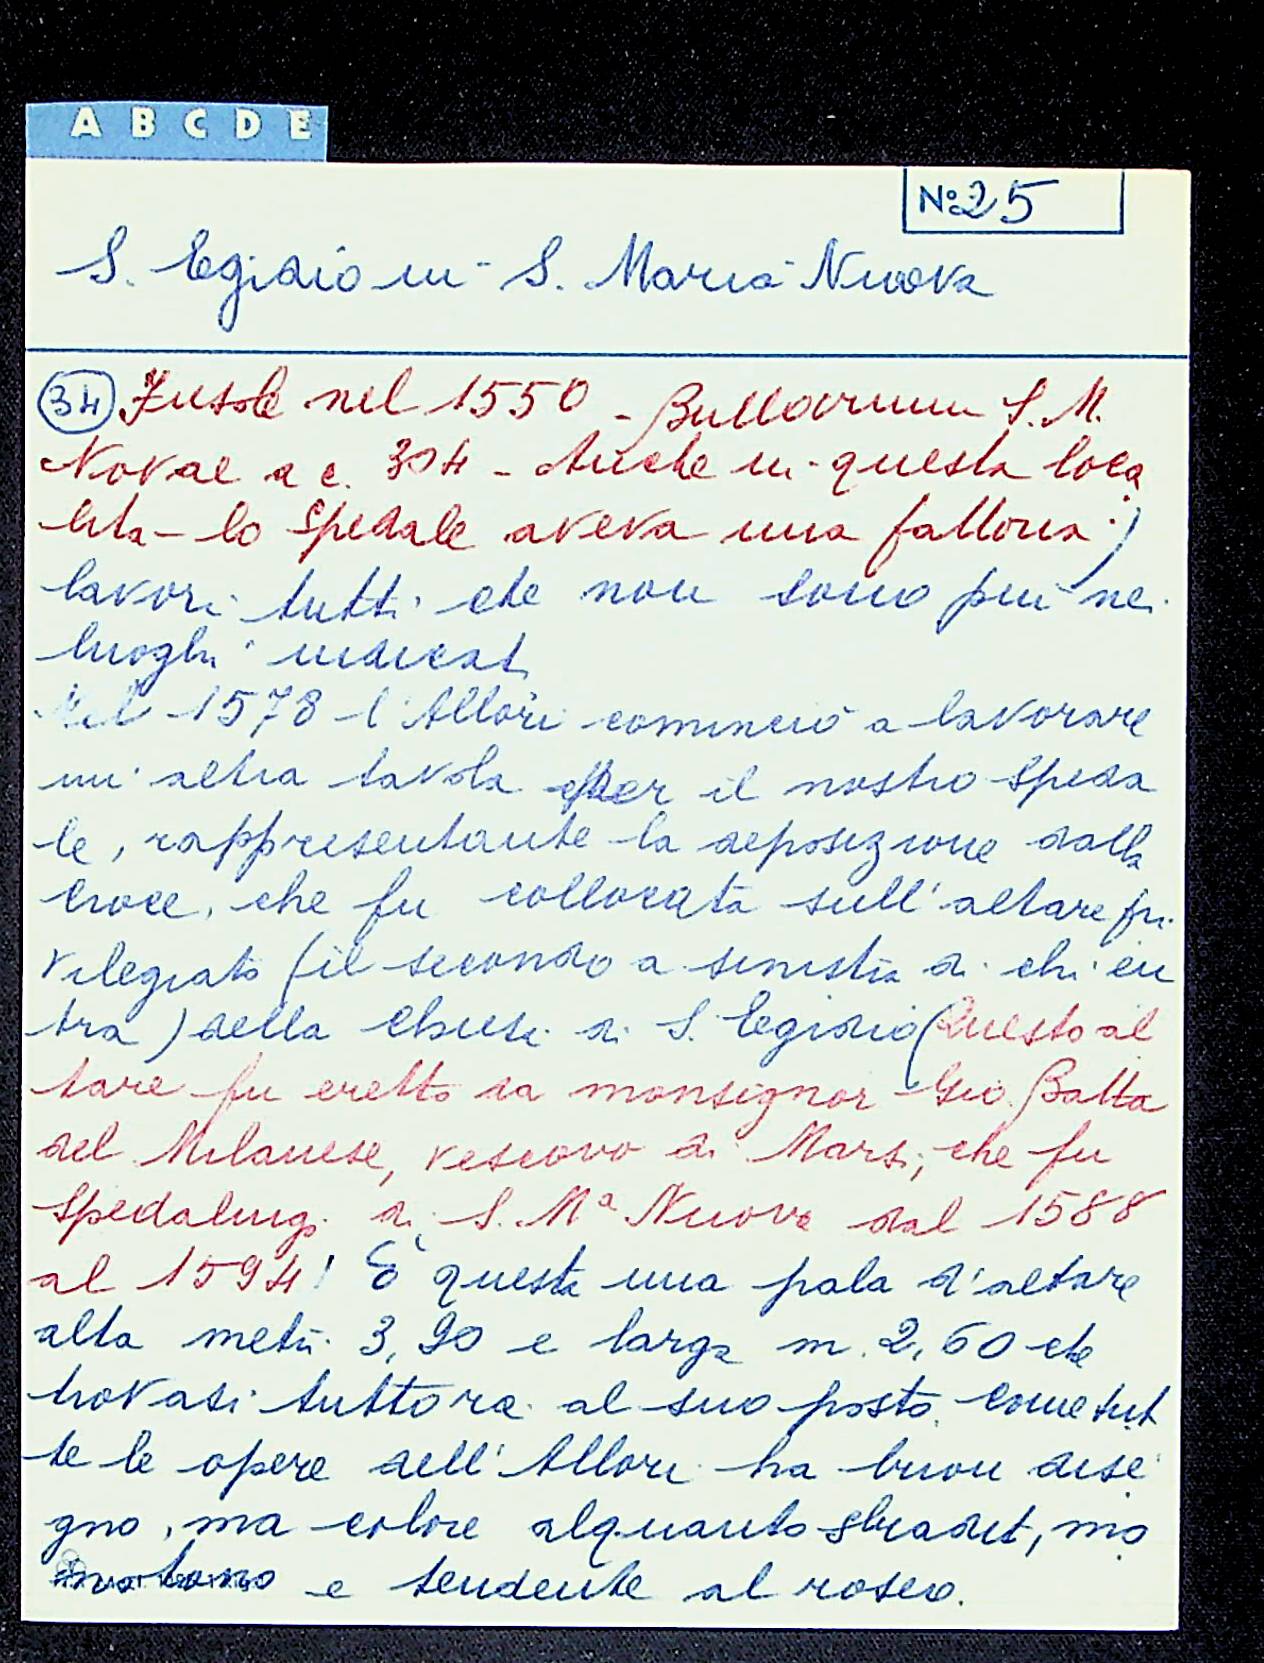 A B C D E
Nº 25
S. Egidio in S. Maria Nuova
(34) Fiesole nel 1550 - Bullarium S. M.
Novae a c. 304 - Anche in questa loca
lita lo Spedale aveva una fattoria.)
lavori tutti che non sono piu nei
luoghi indicati
Nel 1578 l'Allori cominciò a lavorare
un'altra tavola per il nostro Speda
le, rappresentante la deposizione dalla
Croce, che fu collocata sull'altare pri
vilegiato (il secondo a sinistra di chi en
tra) della Chiesa di S. Egidio (Questo al
tare fu eretto da monsignor Gio. Batta
del Milanese, vescovo di Marsi, che fu
Spedalingo di S. Mª Nuova dal 1588
al 1594! È questa una pala d'altare
alta metri 3,90 e larga m. 2,60 che
trovasi tuttora al suo posto. Come tut
te le opere dell'Allori ha buon dise
gno, ma colore alquanto sbiadit, mo
notono e tendente al roseo.